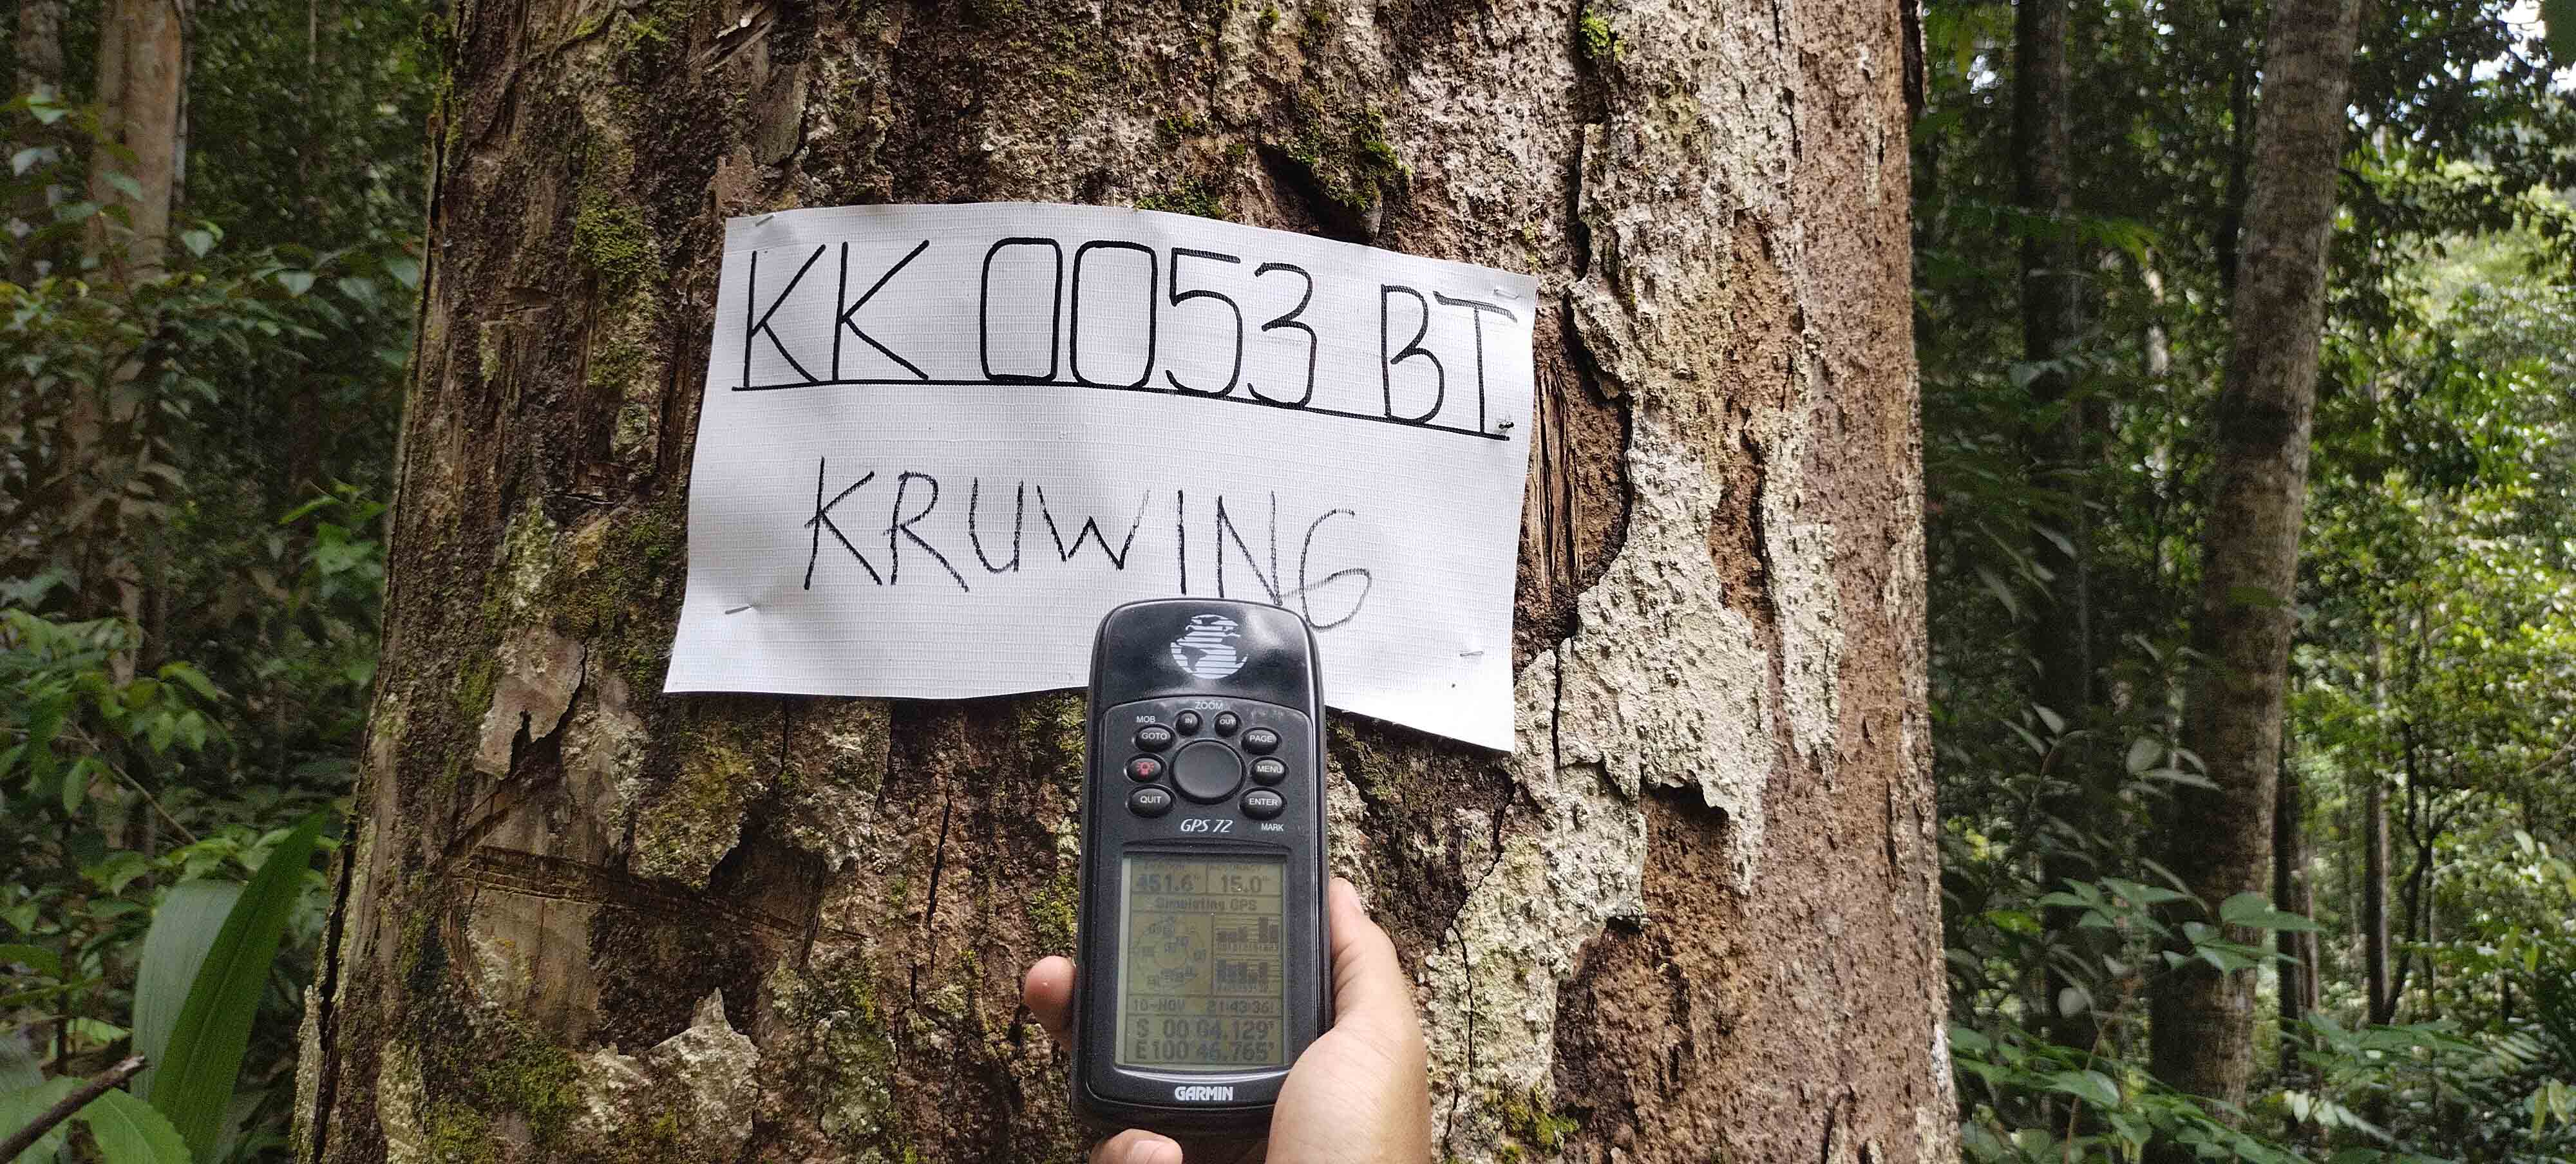 KK 0053 BT.
KRUWING
ZOOM
MOB IN OUT
GOTO PAGE
MENU
QUIT ENTER
GPS 72 MARK
451.6 15.0
Simulating GPS
10-NOV 21:43:36
S 00°04.129'
E100°46.765'
GARMIN